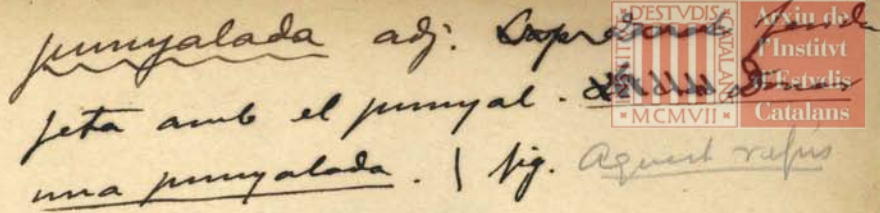 punyalada adj. ferida
feta amb el punyal. Donar
una punyalada. | fig. Aquest refús
INSTITVT D'ESTVDIS CATALANS
• MCMVII •
Arxiu de
l'Institvt
d'Estvdis
Catalans